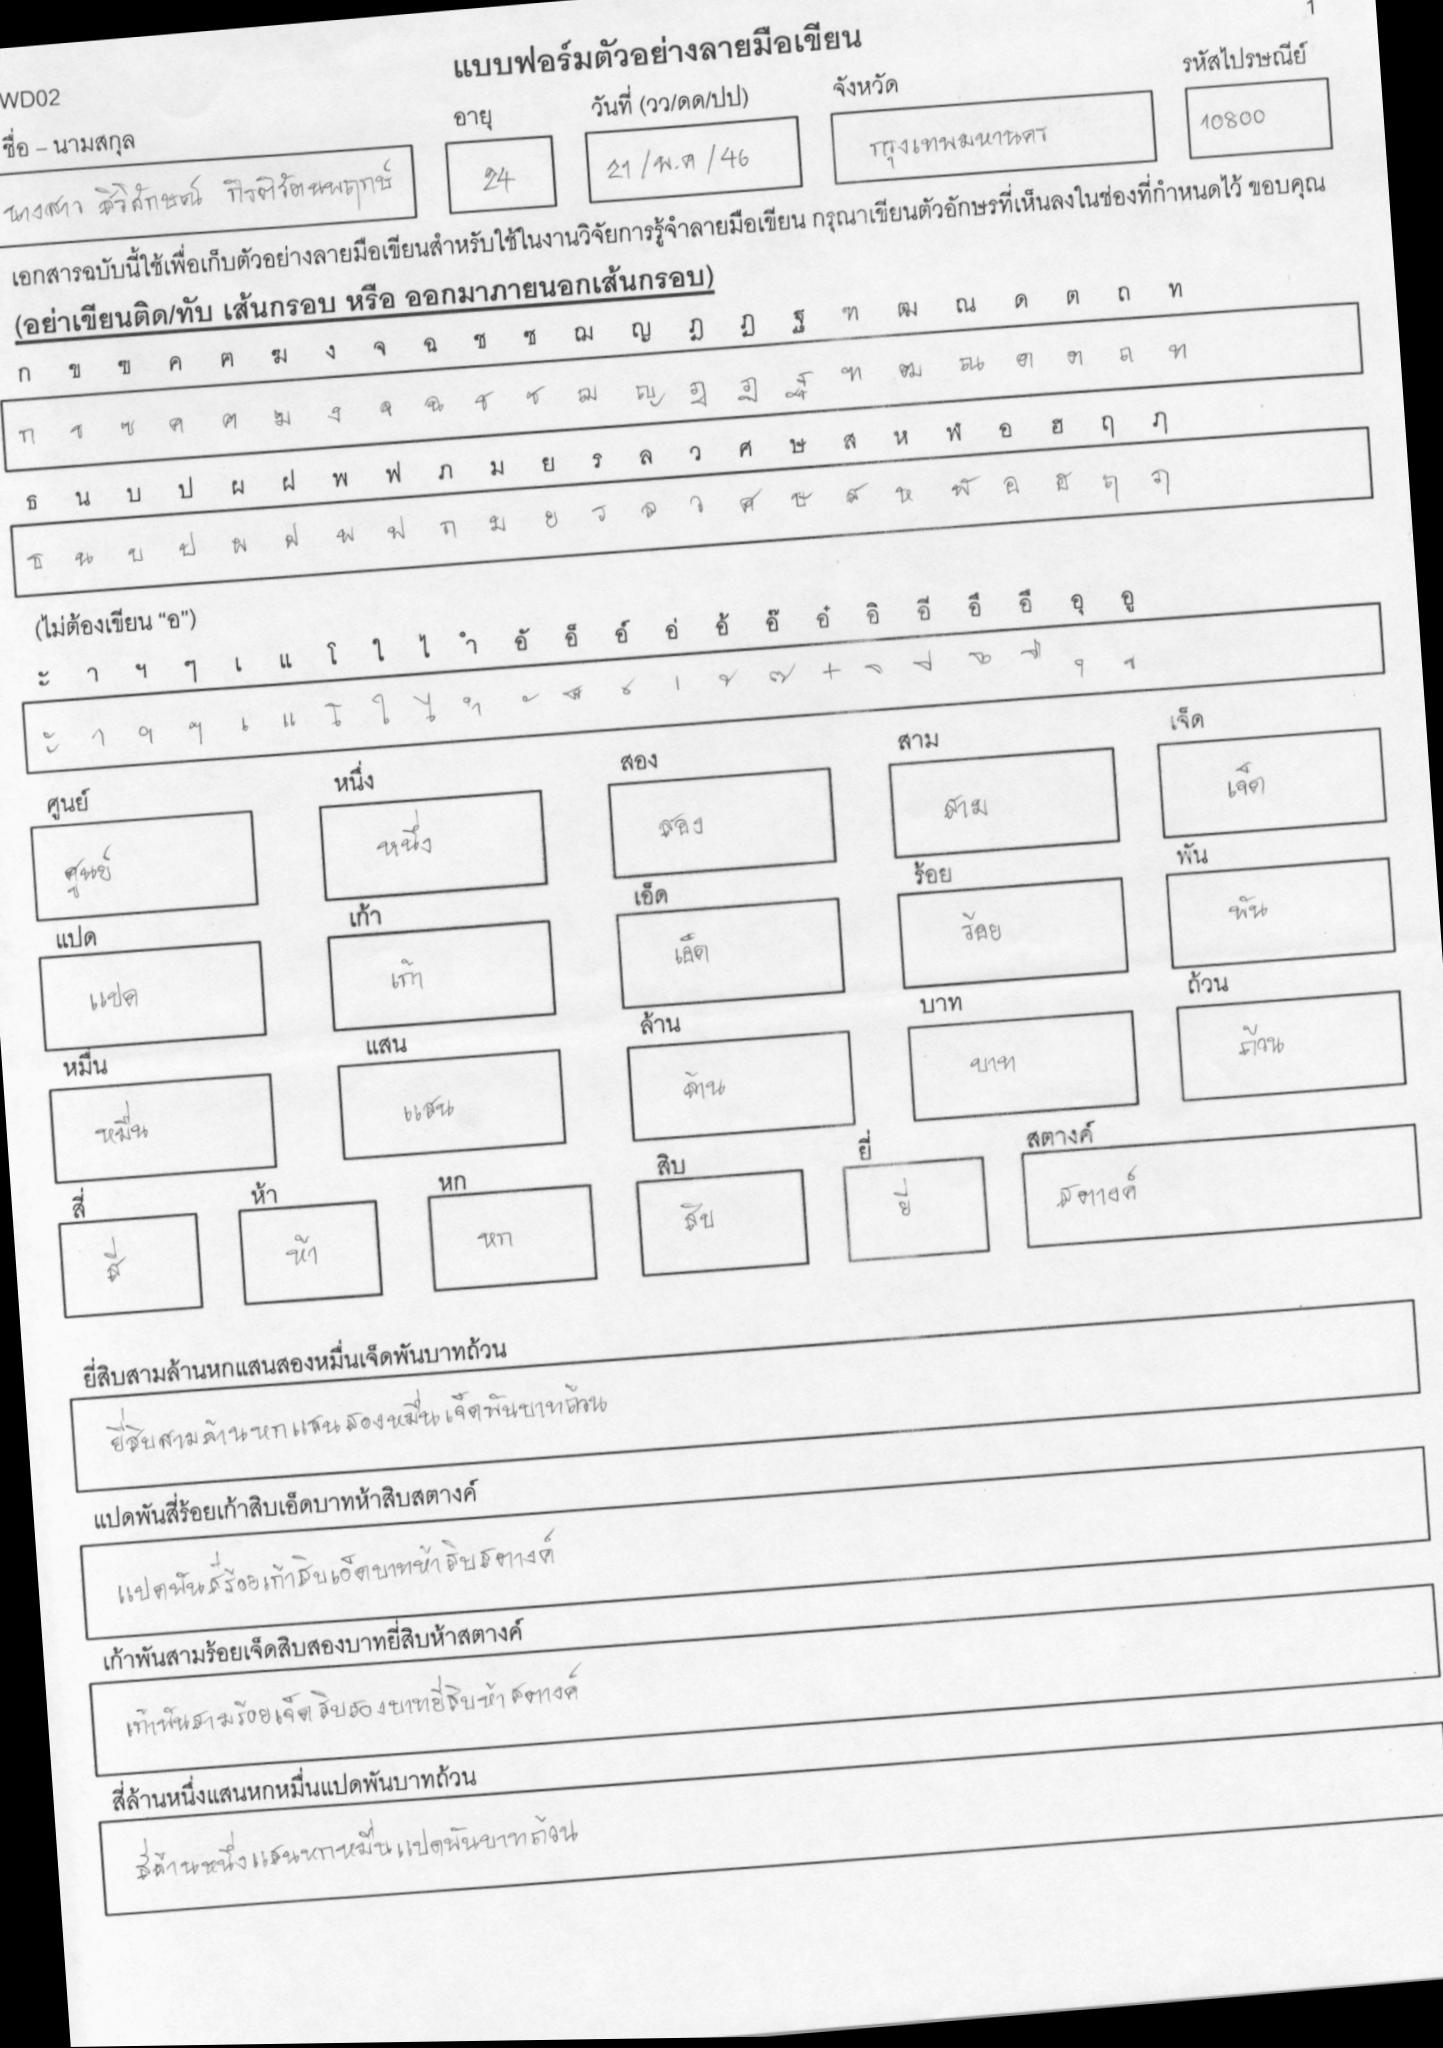 1
แบบฟอร์มตัวอย่างลายมือเขียน
WD02
ชื่อ – นามสกุล อายุ วันที่ (วว/ดด/ปป) จังหวัด รหัสไปรษณีย์
นางสาว สิริลักษณ์ กิรติรัตนพฤกษ์ 24 21 / พ.ค / 46 กรุงเทพมหานคร 10800
เอกสารฉบับนี้ใช้เพื่อเก็บตัวอย่างลายมือเขียนสำหรับใช้ในงานวิจัยการรู้จำลายมือเขียน กรุณาเขียนตัวอักษรที่เห็นลงในช่องที่กำหนดไว้ ขอบคุณ
(อย่าเขียนติด/ทับ เส้นกรอบ หรือ ออกมาภายนอกเส้นกรอบ)
ก ข ฃ ค ฅ ฆ ง จ ฉ ช ซ ฌ ญ ฎ ฏ ฐ ฑ ฒ ณ ด ต ถ ท
ก ข ฃ ค ฅ ฆ ง จ ฉ ช ซ ฌ ญ ฎ ฏ ฐ ฑ ฒ ณ ด ต ถ ท
ธ น บ ป ผ ฝ พ ฟ ภ ม ย ร ล ว ศ ษ ส ห ฬ อ ฮ ฤ ฦ
ธ น บ ป ผ ฝ พ ฟ ภ ม ย ร ล ว ศ ษ ส ห ฬ อ ฮ ฤ ฦ
(ไม่ต้องเขียน “อ”)
ะ า ฯ ๆ เ แ โ ใ ไ ำ อั อ็ อ์ อ่ อ้ อ๊ อ๋ อิ อี อึ อื อุ อู
ะ า ฯ ๆ เ แ โ ใ ไ ำ ั ็ ์ ่ ้ ๊ ๋ ิ ี ึ ื ุ ู
ศูนย์ หนึ่ง สอง สาม เจ็ด
ศูนย์ หนึ่ง สอง สาม เจ็ด
แปด เก้า เอ็ด ร้อย พัน
แปด เก้า เอ็ด ร้อย พัน
หมื่น แสน ล้าน บาท ถ้วน
หมื่น แสน ล้าน บาท ถ้วน
สี่ ห้า หก สิบ ยี่ สตางค์
สี่ ห้า หก สิบ ยี่ สตางค์
ยี่สิบสามล้านหกแสนสองหมื่นเจ็ดพันบาทถ้วน
ยี่สิบสามล้านหกแสนสองหมื่นเจ็ดพันบาทถ้วน
แปดพันสี่ร้อยเก้าสิบเอ็ดบาทห้าสิบสตางค์
แปดพันสี่ร้อยเก้าสิบเอ็ดบาทห้าสิบสตางค์
เก้าพันสามร้อยเจ็ดสิบสองบาทยี่สิบห้าสตางค์
เก้าพันสามร้อยเจ็ดสิบสองบาทยี่สิบห้าสตางค์
สี่ล้านหนึ่งแสนหกหมื่นแปดพันบาทถ้วน
สี่ล้านหนึ่งแสนหกหมื่นแปดพันบาทถ้วน